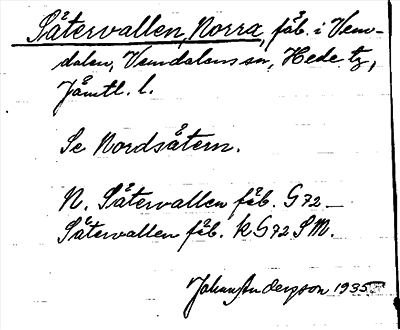 Såtervallen, Norra, fåb. i Vem-
dalen, Vemdalens sn, Hede tg,
Jämtl. l.
Se Nordsåtern.
N. Såtervallen fåb. G72 —
Såtervallen fåb. k G72 SM.
Johan Anderzson 1935